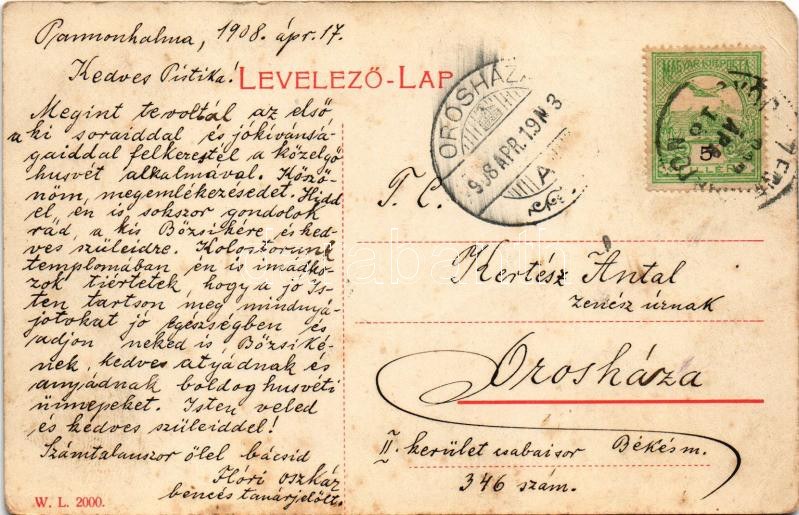 Pannonhalma, 1908. ápr. 17.
Kedves Pistika!
LEVELEZŐ-LAP
Megint te voltál az első,
a ki soraiddal és jókívánsá-
gaiddal felkerestél a közelgő
husvét alkalmával. Köszö-
nöm, megemlékezésedet. Hidd
el, én is sokszor gondolok
rád, a kis Bözsikére és ked-
ves szüleidre. Kolostorunk
templomában én is imádko-
zok tiértetek, hogy a jó Is-
ten tartson meg mindnyá-
jotokat jó egészségben és
adjon neked is, Bözsiké-
nek, kedves atyádnak és
anyjádnak boldog husvéti
ünnepeket. Isten veled
és kedves szüleiddel!
Számtalanszor ölel bácsid
Flóri Oszkár
bencés tanárjelölt.
W. L. 2000.
OROSHÁZA
908 APR. 19 N 3
A
MAGYAR KIR. POSTA
5
T. C.
Kertész Antal
zenész úrnak
Orosháza
II. kerület csabaisor Békésm.
346 szám.